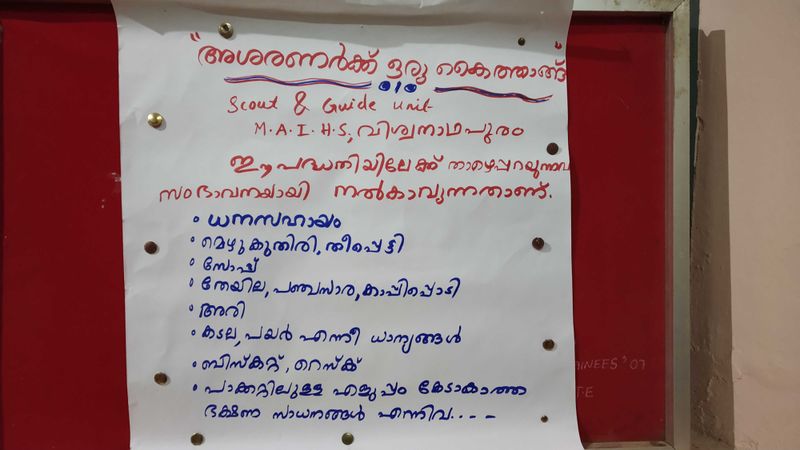 "അശരണർക്ക് ഒരു കൈത്താങ്ങ്"
Scout & Guide unit
M.A.I.H.S, വിശ്വനാഥപുരം
ഈ പദ്ധതിയിലേക്ക് താഴെപ്പറയുന്നവ
സംഭാവനയായി നൽകാവുന്നതാണ്.
• ധനസഹായം
• മെഴുകുതിരി, തീപ്പെട്ടി
• സോപ്പ്
• തേയില, പഞ്ചസാര, കാപ്പിപ്പൊടി
• അരി
• കടല, പയർ എന്നീ ധാന്യങ്ങൾ
• ബിസ്കറ്റ്, റെസ്ക്
• പാക്കറ്റിലുള്ള എളുപ്പം കേടാകാത്ത
ഭക്ഷണ സാധനങ്ങൾ എന്നിവ....
INEES '07
T.E